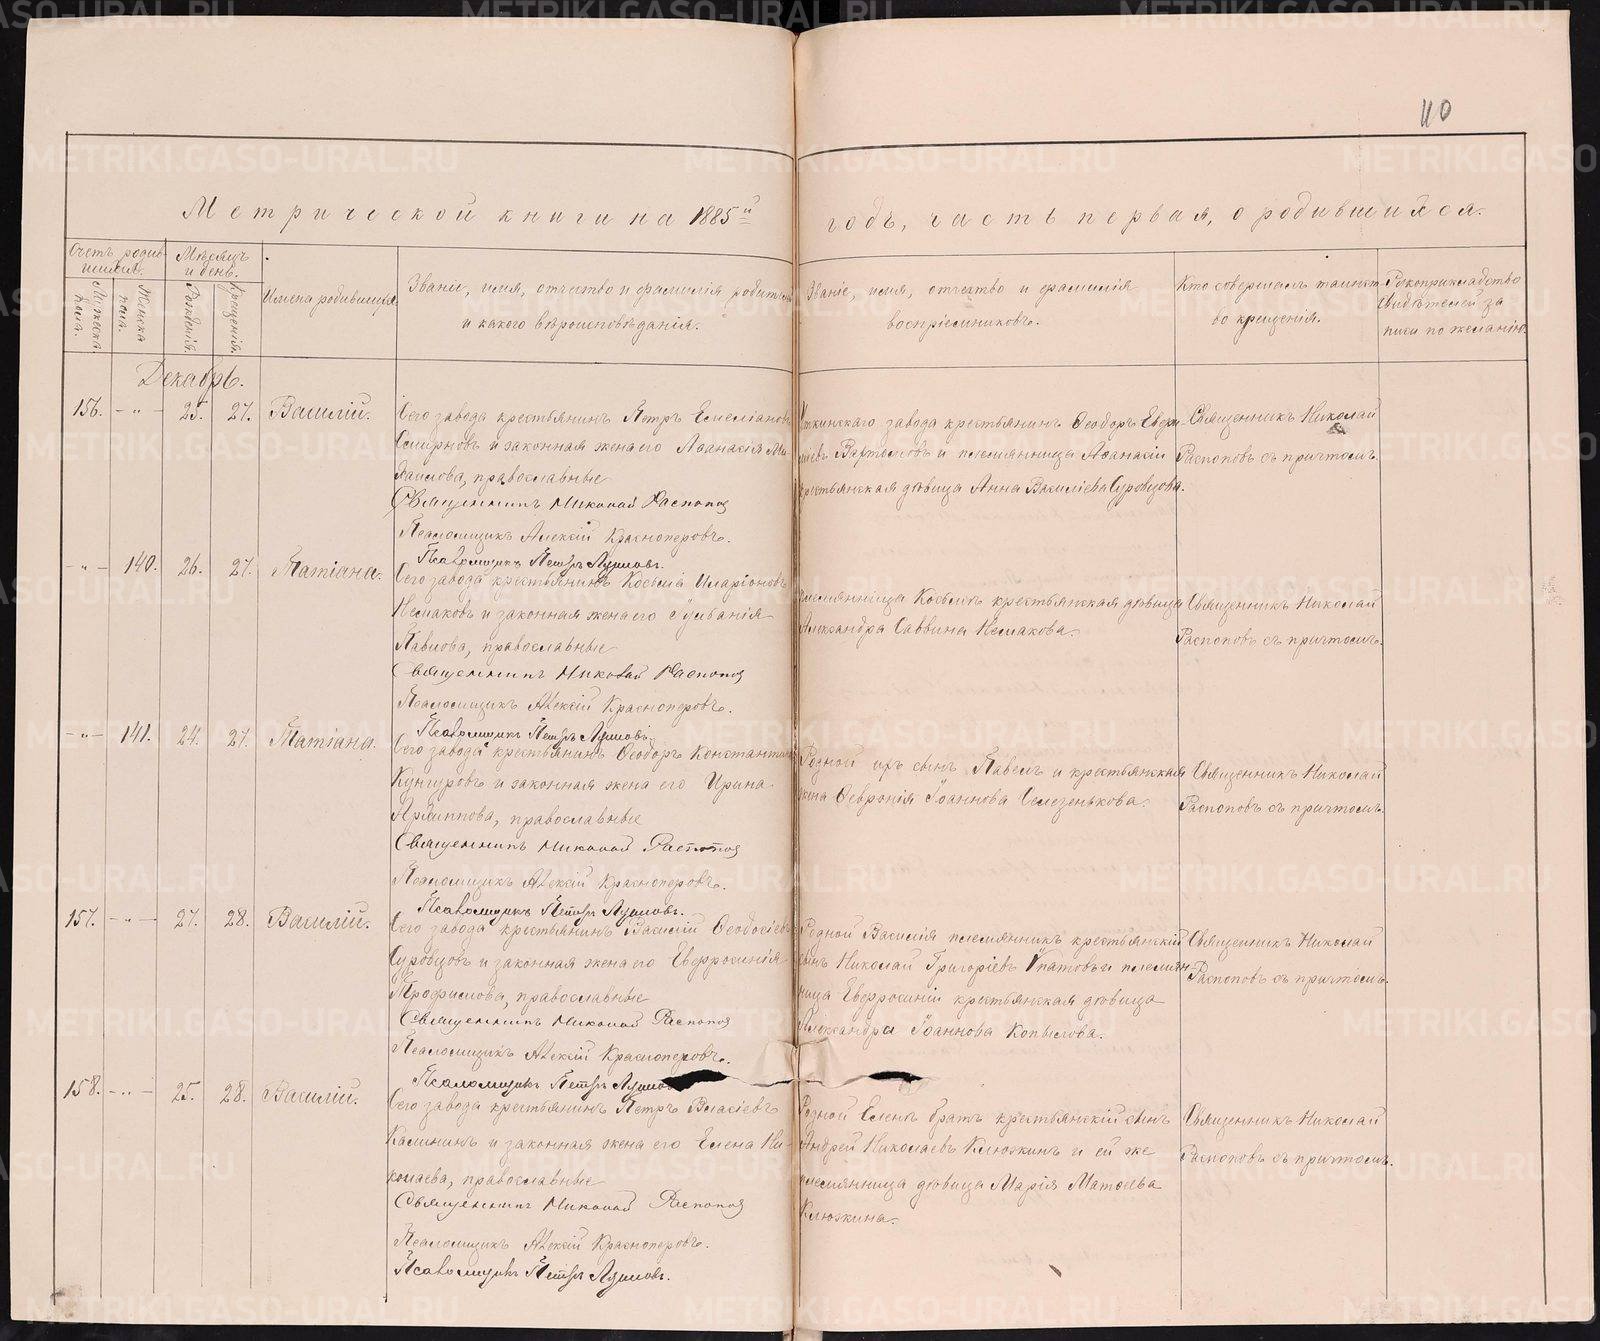 110
Метрической книги на 1885й годъ, часть первая, о родившихся.
Счетъ родив-
шихся.
Мужска
пола.
Женска
пола.
Мѣсяцъ
и день.
Рожденія.
Крещенія.
Имена родившихся.
Званіе, имя, отчество и фамилія родителей
и какого вѣроисповѣданія.
Званіе, имя, отчество и фамилія
воспріемниковъ.
Кто совершалъ таинст
во крещенія.
Рукоприкладство
свидѣтелей за
писи по желанію.
Декабрь.
156. - " - 25. 27. Василій.
Сего завода крестьянинъ Петръ Емеліановъ
Смирновъ и законная жена его Аѳанасія Ми
хаилова, православные
Священникъ Николай Распоповъ
Псаломщикъ Алексій Красноперовъ.
Псаломщикъ Петръ
Уткинскаго завода крестьянинъ Ѳеодоръ
и племянница Аѳанасіи
крестьянская дѣвица Анна Василіева Суровцова.
Священникъ Николай
Распоповъ съ причтомъ.
- " - 140. 26. 27. Татіана.
Сего завода крестьянинъ Косьма Иларіоновъ
и законная жена его
Павлова, православные
Священникъ Николай Распоповъ
Псаломщикъ Алексій Красноперовъ.
Псаломщикъ Петръ
племянница Косьмы крестьянская дѣвица
Александра Саввина
Священникъ Николай
Распоповъ съ причтомъ.
- " - 141. 24. 27. Татіана.
Сего завода крестьянинъ Ѳеодоръ Константиновъ
Кунгуровъ и законная жена его Ирина
Архиппова, православные
Священникъ Николай Распоповъ
Псаломщикъ Алексій Красноперовъ.
Псаломщикъ Петръ
Родной ихъ сынъ Павелъ и крестьянская
жена Ѳевронія Іоаннова Селезенькова.
Священникъ Николай
Распоповъ съ причтомъ.
157. - " - 27. 28. Василій.
Сего завода крестьянинъ Василій Ѳеодосіевъ
Суровцовъ и законная жена его Евфросинія
Трофимова, православные
Священникъ Николай Распоповъ
Псаломщикъ Алексій Красноперовъ.
Псаломщикъ Петръ
Родной Василія племянникъ крестьянскій
сынъ Николай Григоріевъ Упатовъ и племян-
ница Евфросиніи крестьянская дѣвица
Александра Іоаннова Копылова.
Священникъ Николай
Распоповъ съ причтомъ.
158. - " - 25. 28. Василій.
Сего завода крестьянинъ Петръ Власіевъ
Калининъ и законная жена его Елена Ни-
колаева, православные
Священникъ Николай Распоповъ
Псаломщикъ Алексій Красноперовъ.
Псаломщикъ Петръ
Родной Елены братъ крестьянскій сынъ
Андрей Николаевъ Клюжинъ и ей же
племянница дѣвица Марія Матѳіева
Клюжина.
Священникъ Николай
Распоповъ съ причтомъ.
METRIKI.GASO-URAL.RU